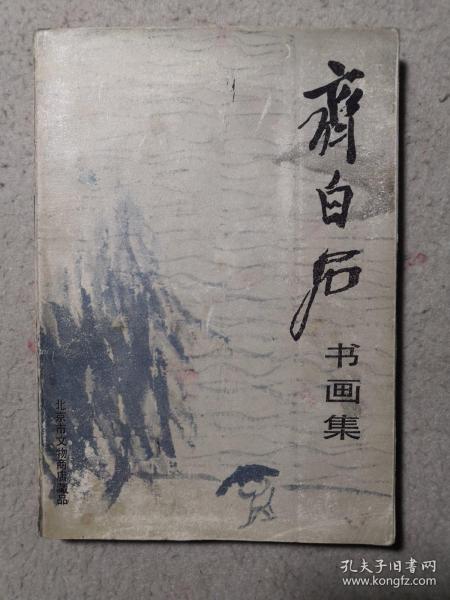 齊白石
书画集
北京市文物商店藏品
孔夫子旧书网
www.kongfz.com